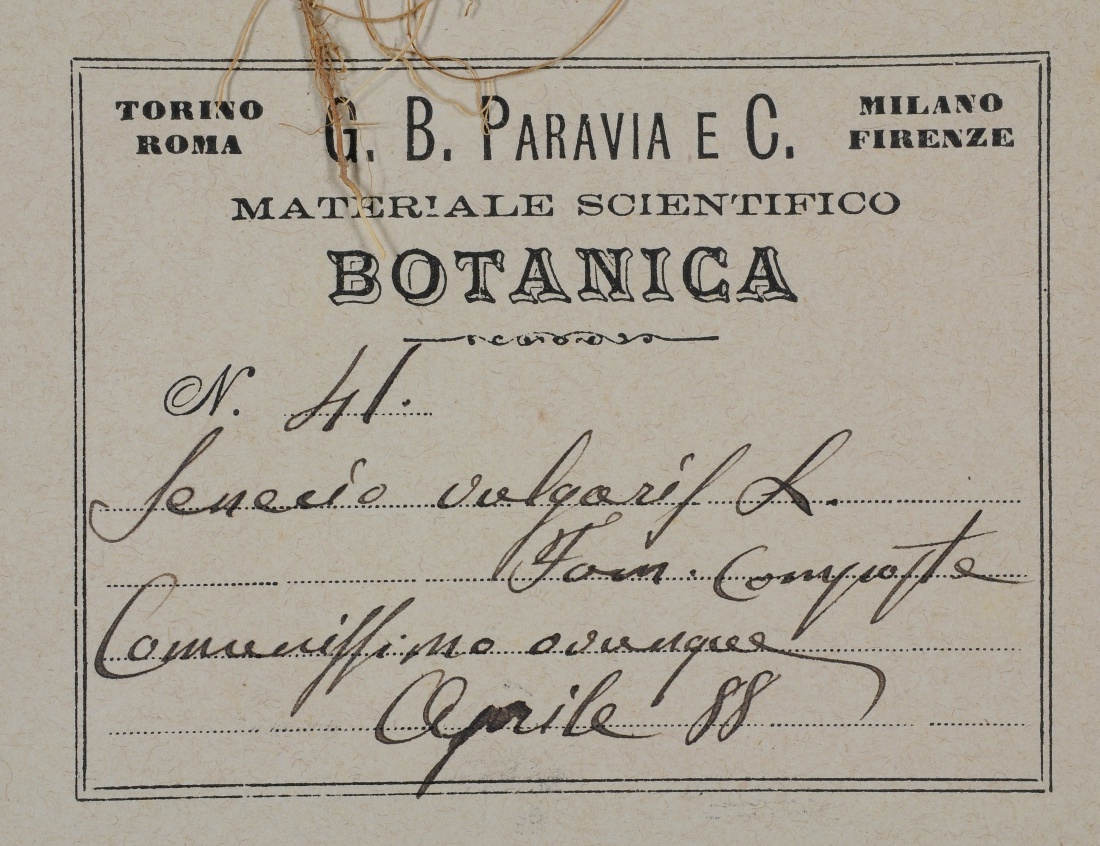 TORINO ROMA
G. B. PARAVIA E C.
MILANO FIRENZE
MATERIALE SCIENTIFICO
BOTANICA
N. 41.
Senecio vulgaris L.
Fam. Composte
Comunissimo ovunque
Aprile 88